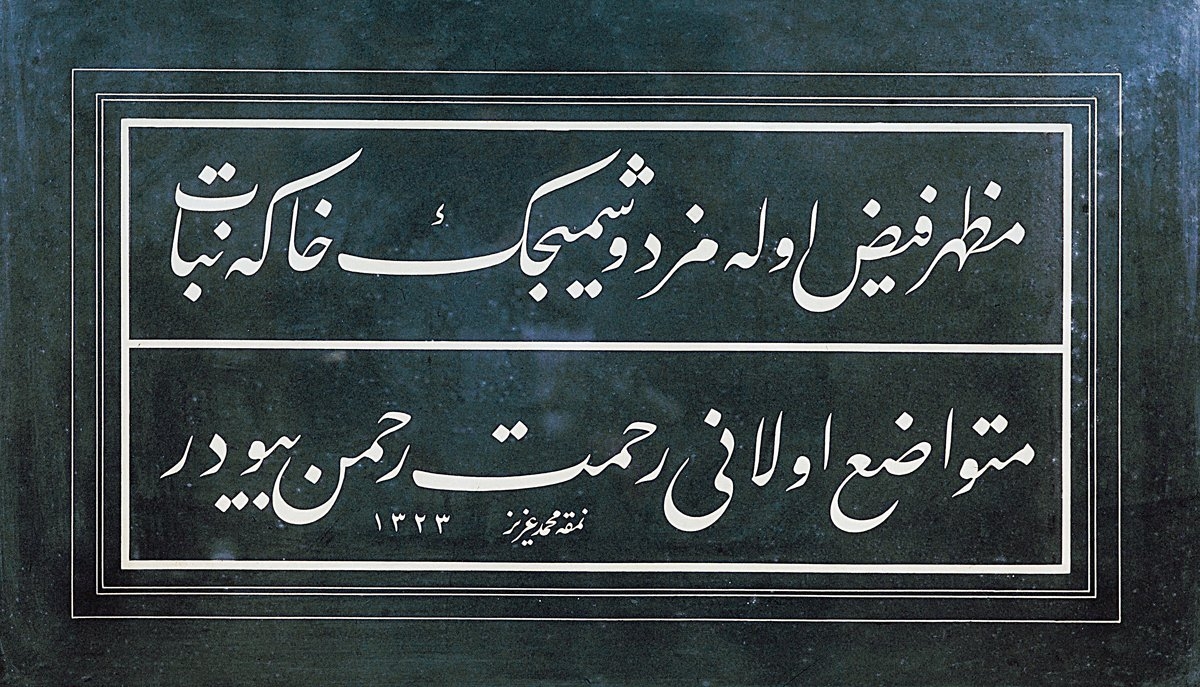 مظهر فیض اوله مز دوشمیجك خاكه نبات
متواضع اولانی رحمت رحمن بیودر
نمقه محمد عزیز ١٣٢٣